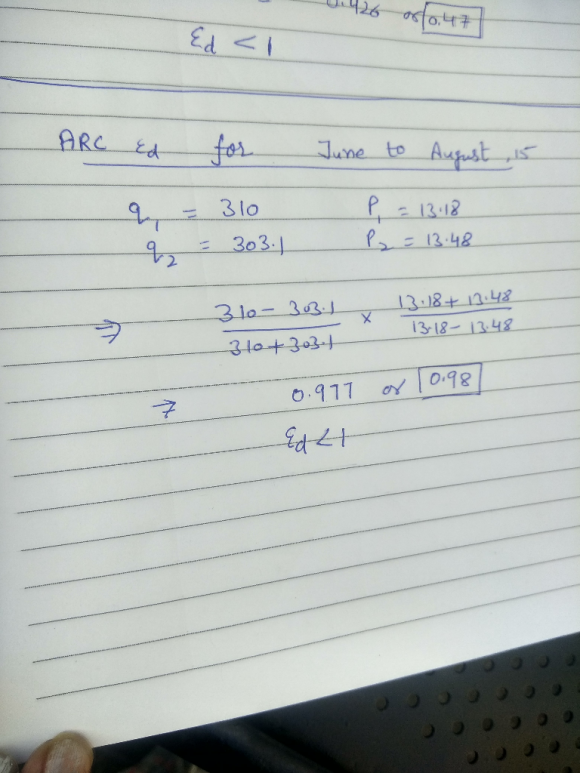 0.426 or 0.47
Ed < 1
ARC Ed for June to August, 15
q1 = 310 P1 = 13.18
q2 = 303.1 P2 = 13.48
⇒ 310 - 303.1 / 310 + 303.1 × 13.18 + 13.48 / 13.18 - 13.48
⇒ 0.977 or 0.98
Ed < 1